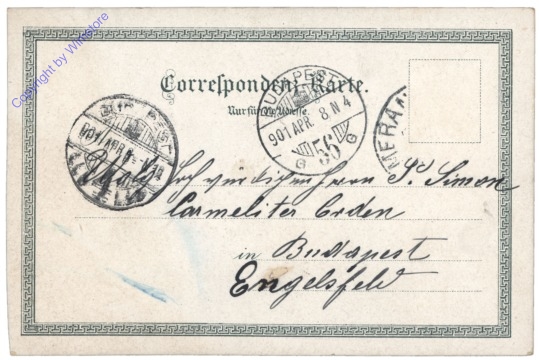 Copyright by Wnrstore
Correspondenz-Karte.
Nur für die Adresse.
BUDAPEST
901 APR. 8. N 4
56
G G
BUDAPEST
901 APR
MERAN
Hochwürdigen Herrn P. Simon
Carmeliter Orden
in Budapest
Engelsfeld